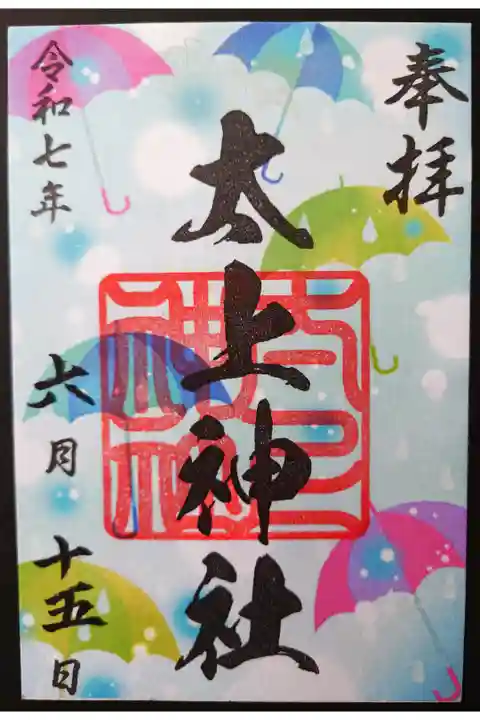 奉拝
太上神社
令和七年
六月十五日